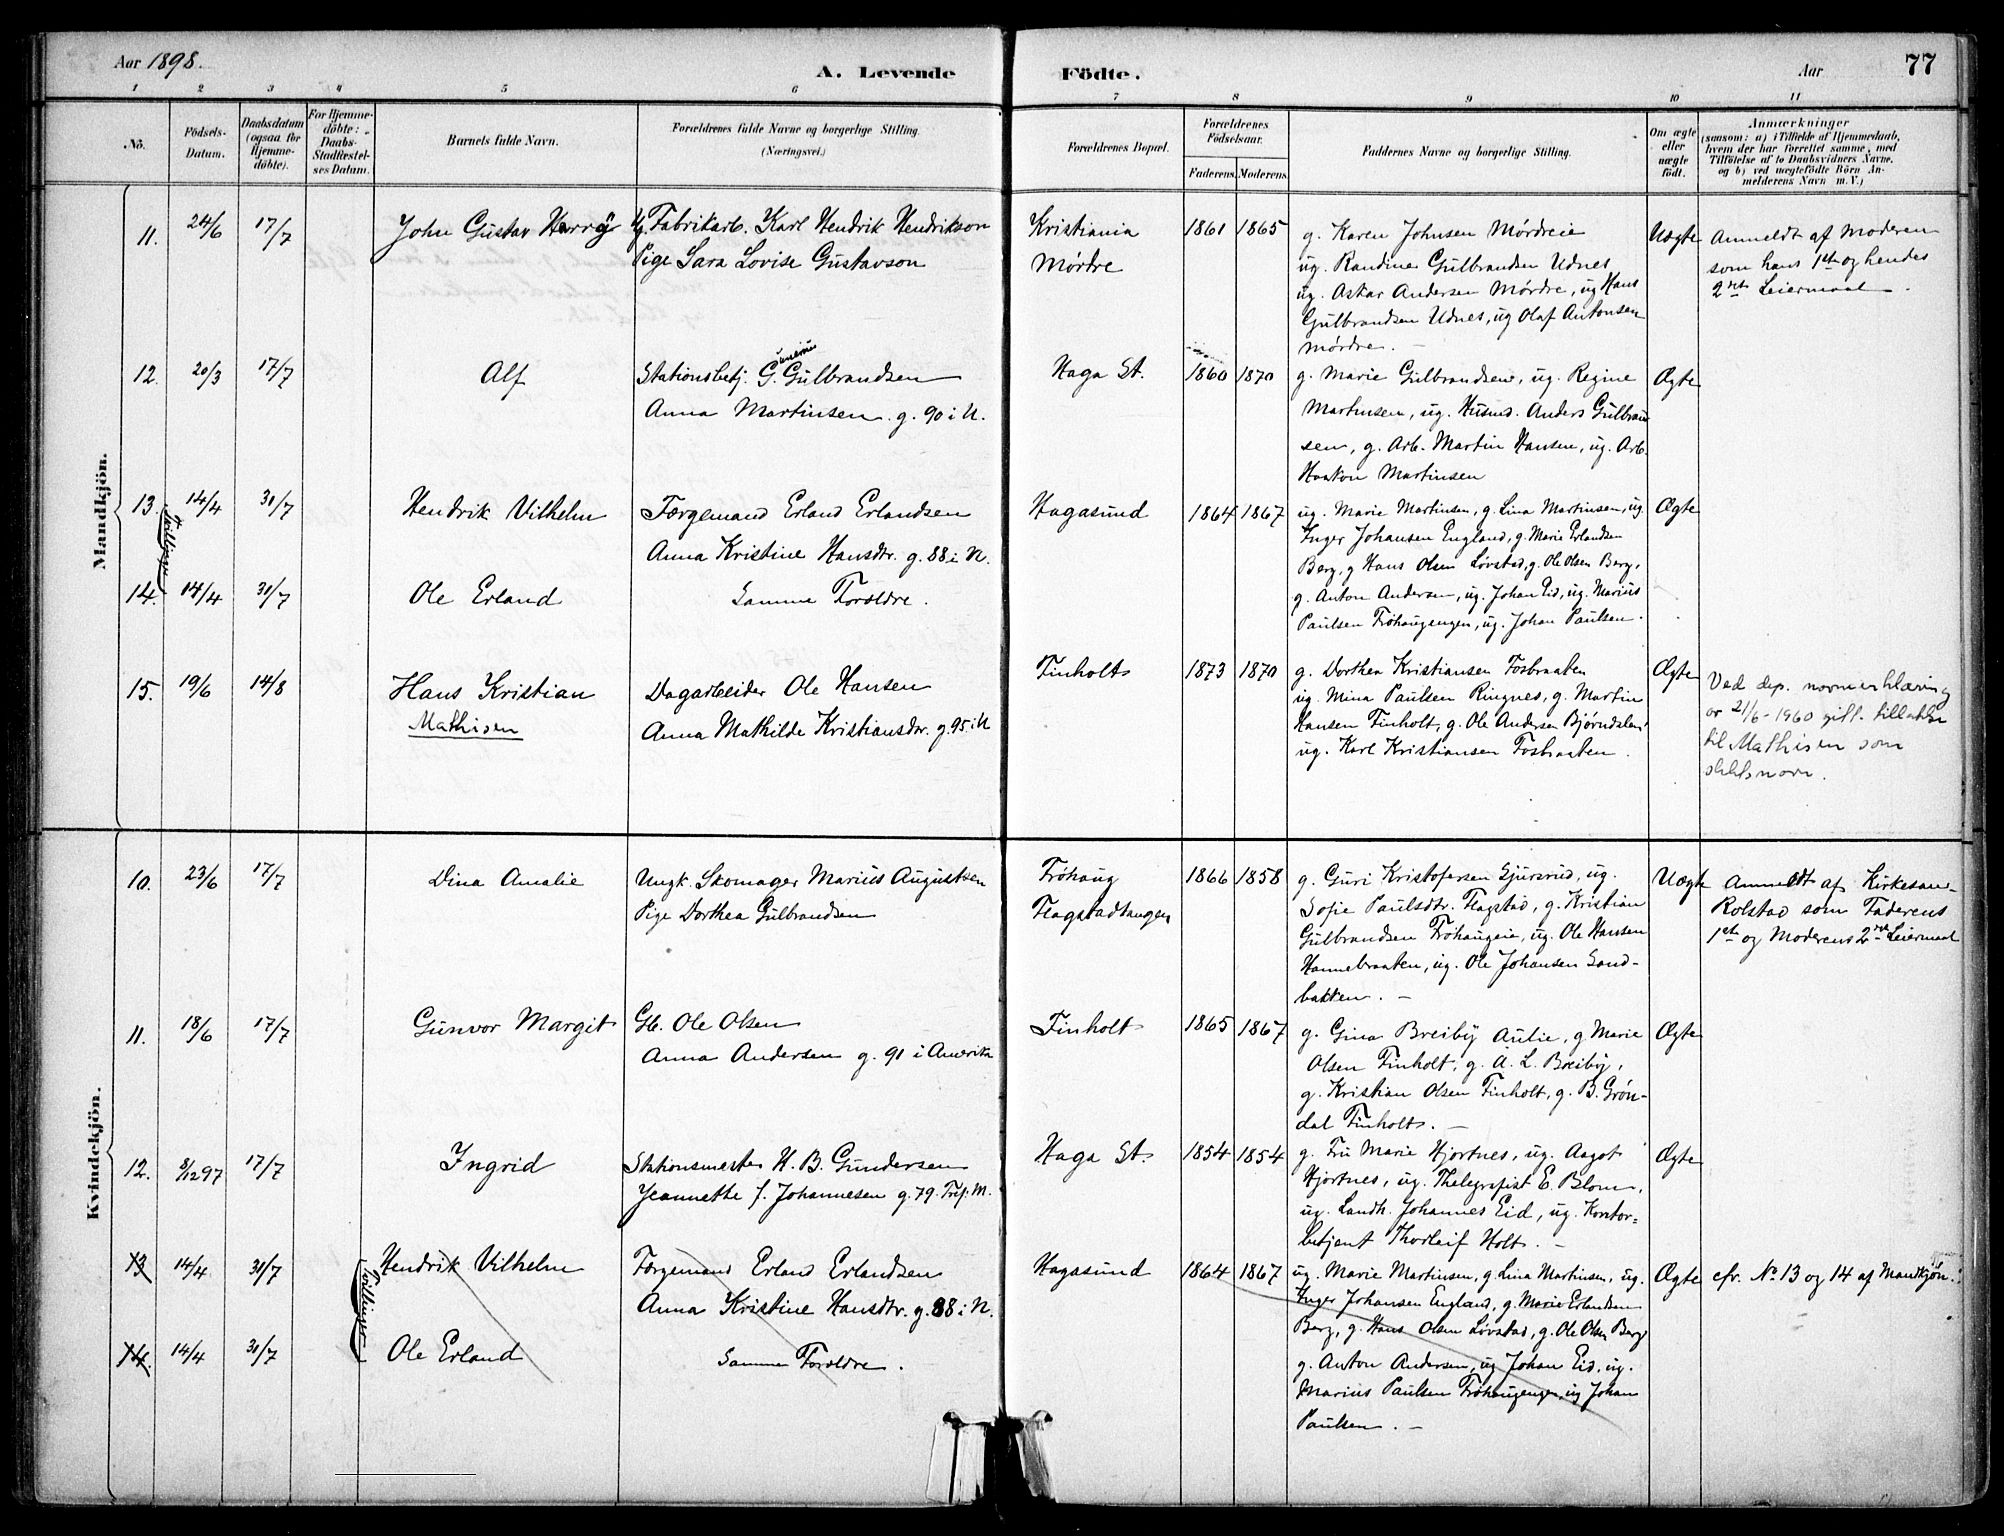 Aar 1898.
A. Levende Födte.
Aar
77
1 2 3 4 5 6 7 8 9 10 11
No.
Födsels-Datum.
Daabsdatum (ogsaa for Hjemme-döbte).
For Hjemme-döbte: Daabs-Stadfæstel-ses Datum.
Barnets fulde Navn.
Forældrenes fulde Navne og borgerlige Stilling.
(Næringsvei.)
Forældrenes Bopæl.
Forældrenes Födselsaar.
Faderens. Moderens.
Faddernes Navne og borgerlige Stilling.
Om ægte eller uægte födt.
Anmærkninger
(saasom: a) i Tilfælde af Hjemmedaab,
hvem der har forrettet samme, med
Tilföielse af to Daabsvidners Navne,
og b) ved uægtefödte Börn An-
melderens Navn m. V.)
Mandkjön.
11. 24/6 17/7 John Gustav Harry
Fabrikarb. Karl Hendrik Hendrikson
Pige Sara Lovise Gustavson
Kristiania
Mørdre
1861 1865
g. Karen Johnsen Mørdreie
ug. Randine Gulbrandsen Udnes
ug. Askar Andersen Mørdre, ug Hans
Gulbrandsen Udnes, ug Olaf Antonsen
Mørdre. -
Uægte
Anmeldt af Moderen
som hans 1ste og hendes
2det Leiermaal.
12. 20/3 17/7 Alf
Stationsbetj. G. Gulbrandsen
Anna Martinsen g. 90 i N.
Haga St.
1860 1870
g. Marie Gulbrandsen, ug. Regine
Martinsen, ug. Husmd. Anders Gulbrand
sen, g. Arb. Martin Hansen, ug. Arb.
Haakon Martinsen
Ægte
13. 14/4 31/7 Hendrik Vilhelm
Tvillinger
Færgemand Erland Erlandsen
Anna Kristine Hansdtr. g. 88 i N.
Hagasund
1864 1867
ug. Marie Martinsen, g. Lina Martinsen, ug.
Inger Johansen England, g. Marie Erlandsen
Berg, g Hans Olsen Løvstad, g. Ole Olsen Berg,
g. Anton Andersen, ug. Johan Eid, ug. Marius
Paulsen Frøhaugengen, ug. Johan Paulsen.
Ægte
14. 14/4 31/7 Ole Erland
Samme Foreldre.
15. 19/6 14/8 Hans Kristian
Mathisen
Dagarbeider Ole Hansen
Anna Mathilde Kristiansdtr. g. 95 i N
Finholt
1873 1870
g. Dorthea Kristiansen Fosbraaten
ug. Mina Paulsen Ringnes, g. Martin
Hansen Finholt, g. Ole Andersen Bjørndalen,
ug. Karl Kristiansen Fosbraaten.
Ægte
Ved dep. navneerklæring
av 21/6-1960 gitt tillatelse
til Mathisen som
slektsnavn.
Kvindekjön.
10. 23/6 17/7 Dina Amalie
Ungk. Skomager Marius Augustsen
Pige Dorthea Gulbrandsen
Frøhaug
Flagstadhaugen
1866 1858
g. Guri Kristofersen Gjursrud, ug.
Sofie Paulsdtr. Flagstad, g. Kristian
Gulbrandsen Frøhaugeie, ug. Ole Hansen
Hannebraaten, ug. Ole Johansen Sand-
bakken. -
Uægte
Anmeldt af Kirkesan-
Rolstad som Faderens
1ste og Moderens 2det Leiermaal
11. 18/6 17/7 Gunvor Margit
Gb. Ole Olsen
Anna Andersen g. 91 i Amerika
Finholt
1865 1867
g. Gina Breiby Aulie, g. Marie
Olsen Finholt, g. A. L. Breiby,
g. Kristian Olsen Finholt, g. B. Grøn-
dal Finholt. -
Ægte
12. 8/12 97 17/7 Ingrid
Stationsmester H. B. Gundersen
Jeannette f. Johannesen g. 79. Tref. M.
Haga St.
1854 1854
g. Fru Marie Hjortnes, ug. Aagot
Hjortnes, ug. Thelegrafist E. Blom,
ug. Landh. Johannes Eid, ug. Kontor=
betjent Thorleif Holt. -
Ægte
13 14/4 31/7 Hendrik Vilhelm
Tvillinger
Færgemand Erland Erlandsen
Anna Kristine Hansdtr. g. 88 i N.
Hagasund
1864 1867
ug. Marie Martinsen, g. Lina Martinsen, ug.
Inger Johansen England, g. Marie Erlandsen
Berg, g. Hans Olsen Løvstad, g. Ole Olsen Berg
g. Anton Andersen, ug Johan Eid, ug.
Marius Paulsen Frøhaugengen, ug Johan
Paulsen. -
Ægte
cfr. No 13 og 14 af Mandkjøn.
14. 14/4 31/7 Ole Erland
Samme Foreldre.